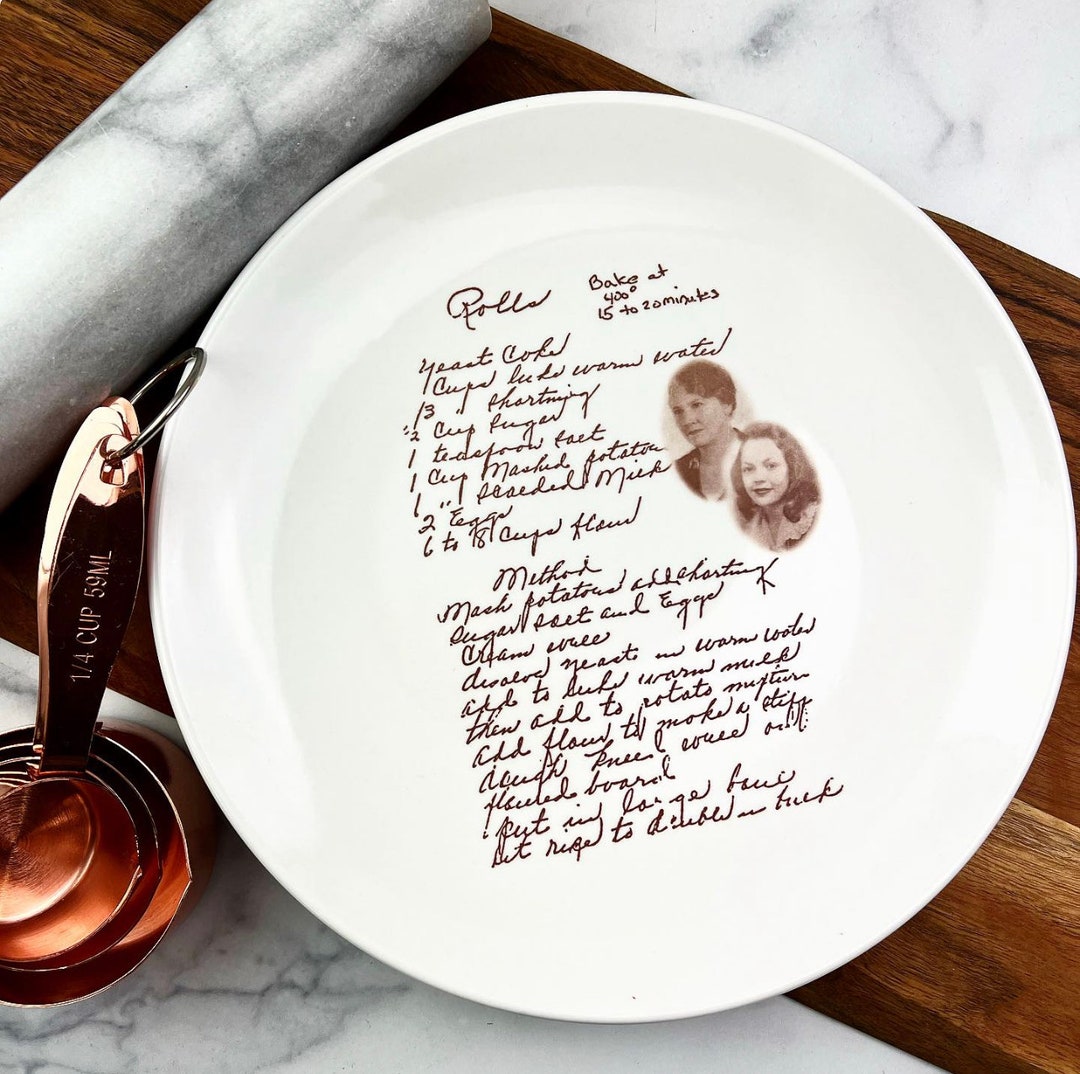 Rolls
Bake at
400°
15 to 20 minutes
yeast Coke
1 Cups luke warm water
13 " shortning
:2 Cup Sugar
1 teaspoon salt
1 Cup Mashed potatou
1 " scalded Milk
2 Eggs
6 to 8 Cups flour
Method
Mash potatous add shortning
Sugar salt and Eggs
Cream well
desolve yeast in warm water
add to luke warm milk
then add to potato mixture
add flour to make a stiff
dough kneed well on
floured board
put in large bowl
let rise to double in bulk
1/4 CUP 59ML